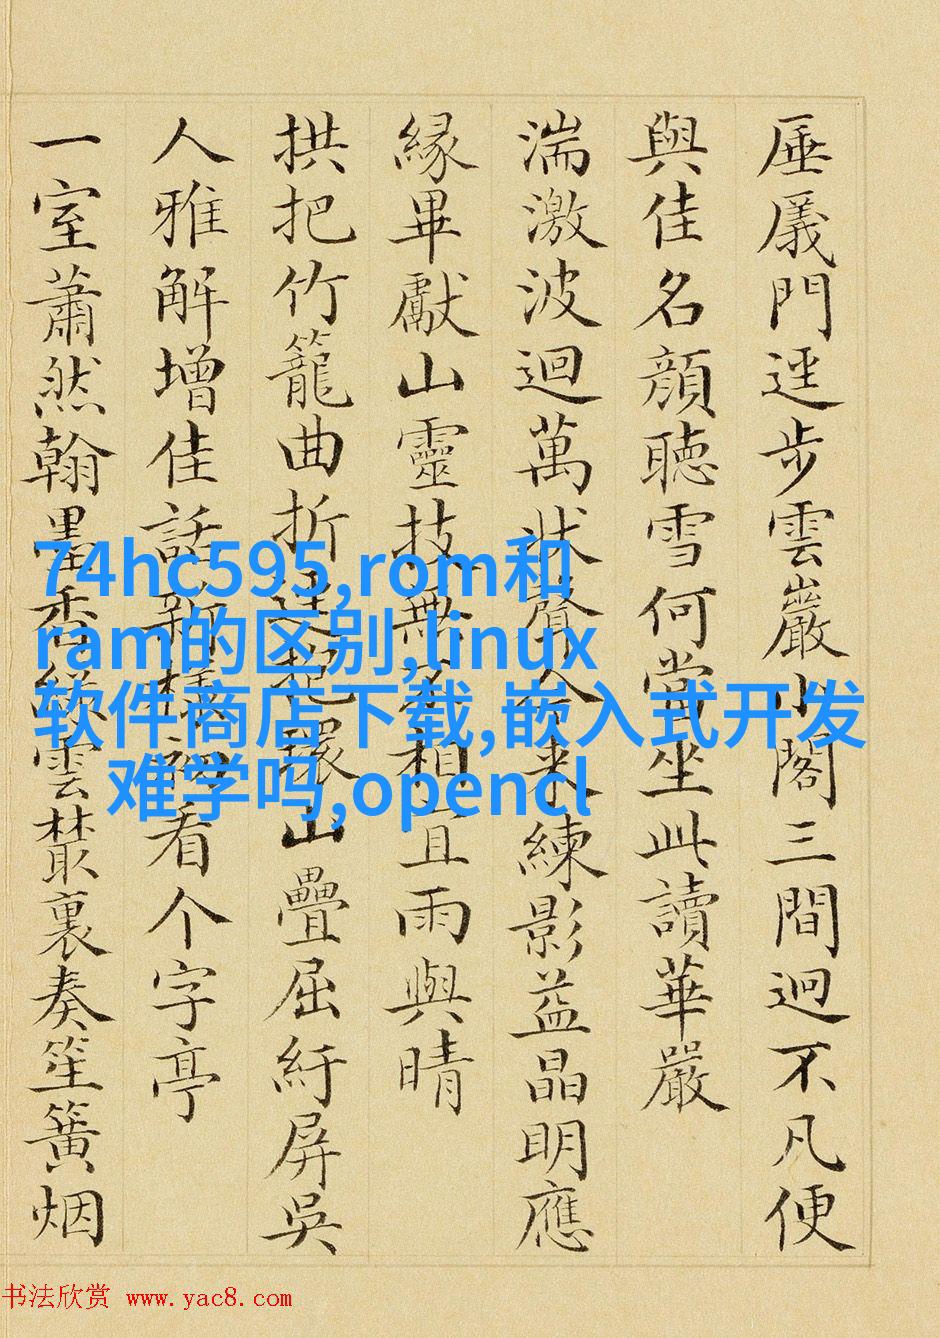 厜㕒門逕步雲巖小閣三間迥不凡便
與佳名顏聽雪何當坐此讀華嚴
湍激波迴萬狀聲入來練影益晶明應
緣畢獻山靈技無不相宜雨與晴
拱把竹籠曲折環山疊屈紆屏吳
人雅解增佳話新樣看个字亭
一室蕭然翰墨香綠雲叢裏奏笙簧烟
74hc595,rom和
ram的区别,linux
软件商店下载,嵌入式开发
难学吗,opencl
书法欣赏 www.yac8.com